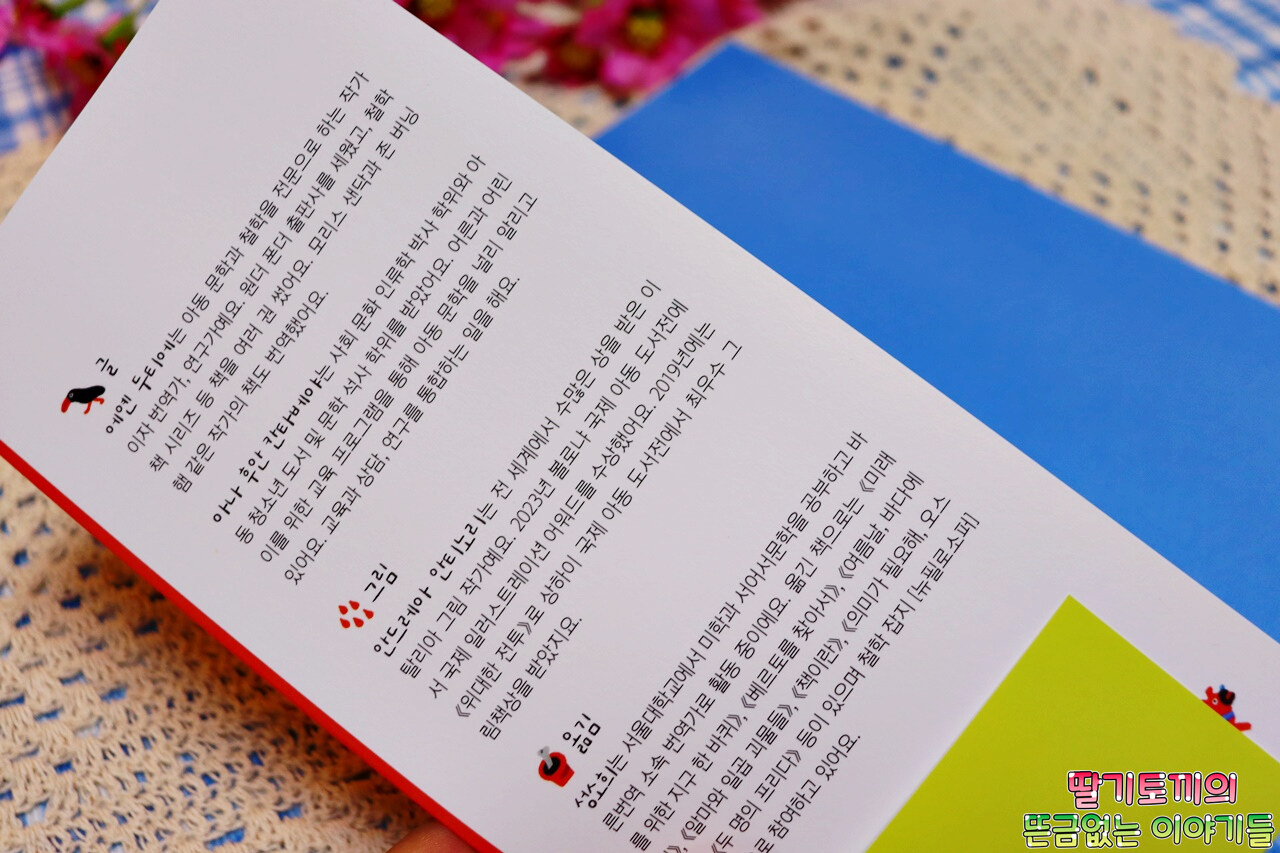 글
에옌 두티에는 아동 문학과 철학을 전문으로 하는 작가
이자 번역가, 연구가예요. 원더 폰더 출판사를 세웠고, 철학
책 시리즈 등 책을 여러 권 썼어요. 모리스 샌닥과 존 버닝
햄 같은 작가의 책도 번역했어요.
아나 후안 칸타베야는 사회 문화 인류학 박사 학위와 아
동 청소년 도서 및 문학 석사 학위를 받았어요. 어른과 어린
이를 위한 교육 프로그램을 통해 아동 문학을 널리 알리고
있어요. 교육과 상담, 연구를 통합하는 일을 해요.
그림
안드레아 안티노리는 전 세계에서 수많은 상을 받은 이
탈리아 그림 작가예요. 2023년 볼로냐 국제 아동 도서전에
서 국제 일러스트레이션 어워드를 수상했어요. 2019년에는
《위대한 전투》로 상하이 국제 아동 도서전에서 최우수 그
림책상을 받았지요.
옮김
성소희는 서울대학교에서 미학과 서어서문학을 공부하고 바
른번역 소속 번역가로 활동 중이에요. 옮긴 책으로는 《미래
를 위한 지구 한 바퀴》, 《베르토를 찾아서》, 《여름날, 바다에
《알마와 일곱 괴물들》, 《책이란》, 《의미가 필요해, 오스
《두 명의 프리다》 등이 있으며 철학 잡지 [뉴필로소퍼]
로 참여하고 있어요.
딸기토끼의
뜬금없는 이야기들